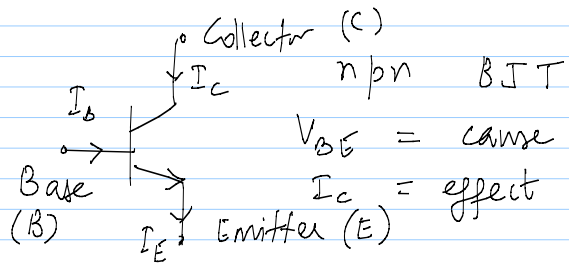 Collector (C)
I_C
npn BJT
I_B
V_BE = cause
Base
(B)
I_C = effect
I_E
Emitter (E)